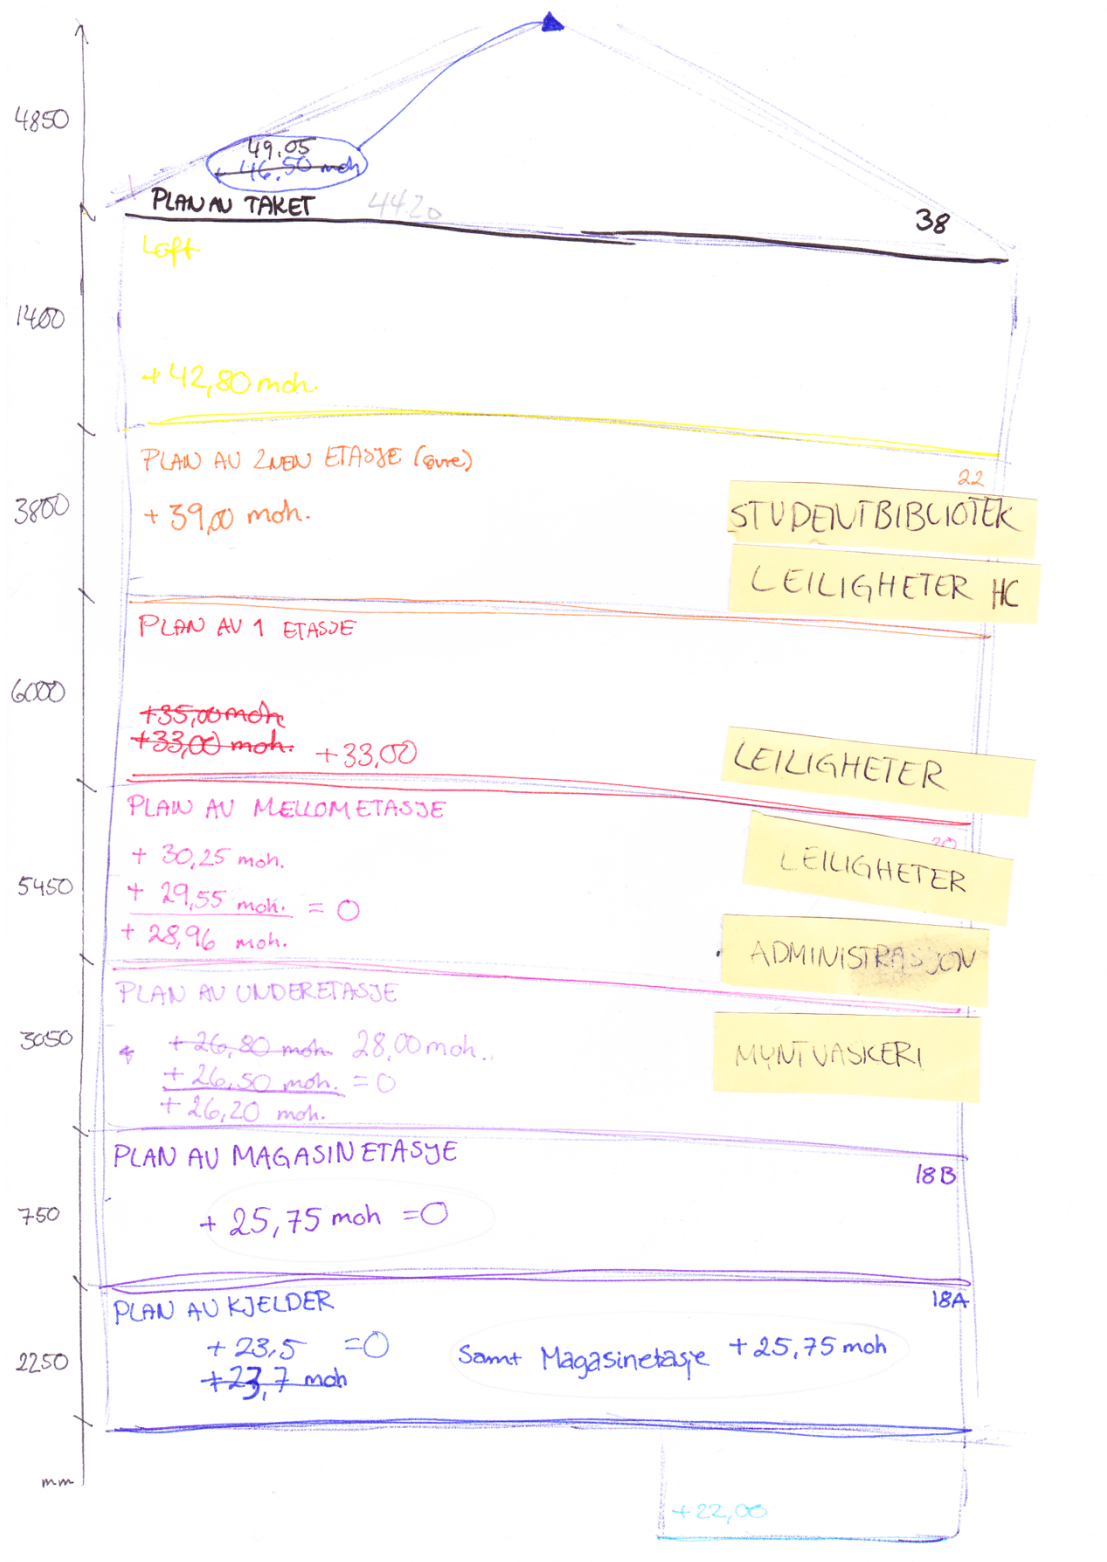 4850
49,05
+ 46,50 moh
PLAN AV TAKET
4420
38
Loft
1400
+ 42,80 moh.
PLAN AV 2NEN ETASJE (øvre)
22
3800
+ 39,00 moh.
STUDENTBIBLIOTEK
LEILIGHETER HC
PLAN AV 1 ETASJE
6000
+35,00 moh
+33,00 moh. +33,00
LEILIGHETER
PLAN AV MELLOMETASJE
20
+ 30,25 moh.
LEILIGHETER
5450
+ 29,55 moh. = 0
+ 28,96 moh.
ADMINISTRASJON
PLAN AV UNDERETASJE
3050
+ 26,80 moh. 28,00 moh.
MYNTVASKERI
+ 26,50 moh. = 0
+ 26,20 moh.
PLAN AV MAGASINETASJE
18B
750
+ 25,75 moh = 0
PLAN AV KJELDER
18A
+ 23,5 = 0
Samt Magasinetasje +25,75 moh
2250
+23,7 moh
mm
+22,00